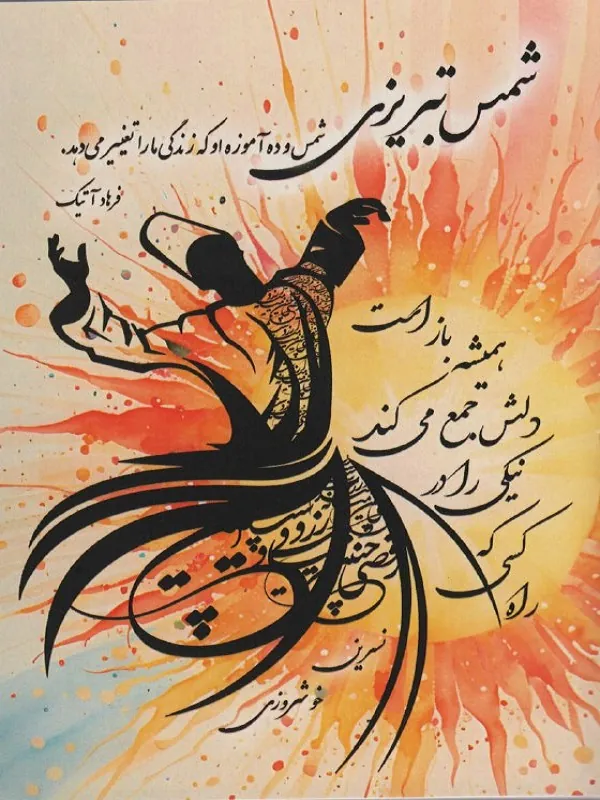 شمس تبریزی
شمس و ده آموزه او که زندگی ما را تغییر می دهد.
فرهاد آتیک
همیشه باز است
دلش جمع می کند
نیکی را در
کسی که
راه
رقصی چنین
نسرین